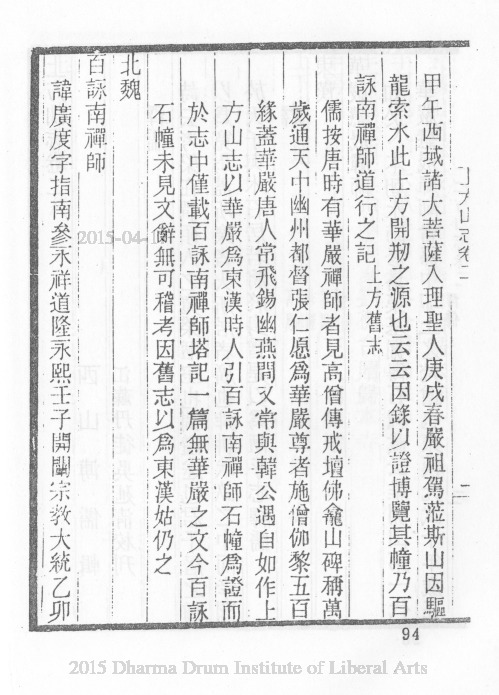 上方山志卷二
二
甲午西域諸大菩薩入理聖人庚戌春嚴祖駕蒞斯山因驅
龍索水此上方開刱之源也云云因錄以證博覽其幢乃百
詠南禪師道行之記上方舊志
儒按唐時有華嚴禪師者見高僧傳戒壇佛龕山碑稱萬
歲通天中幽州都督張仁愿爲華嚴尊者施僧伽黎五百
緣蓋華嚴唐人常飛錫幽燕間又常與韓公遇自如作上
方山志以華嚴爲東漢時人引百詠南禪師石幢爲證而
於志中僅載百詠南禪師塔記一篇無華嚴之文今百詠
石幢未見文辭無可稽考因舊志以爲東漢姑仍之
北魏
百詠南禪師
諱廣度字指南參永祥道隆永熙壬子開闡宗教大統乙卯
94
2015-04-1
2015 Dharma Drum Institute of Liberal Arts